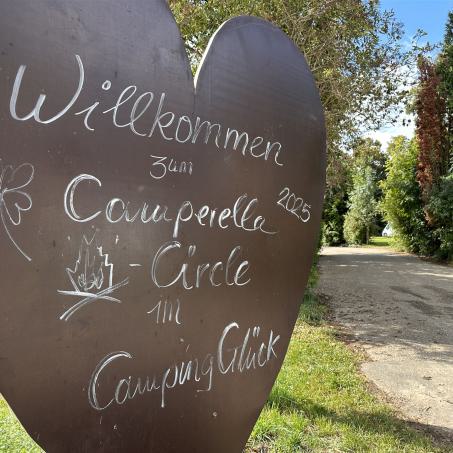 Willkommen
zum
Camperella 2025
-Circle
im
CampingGlück